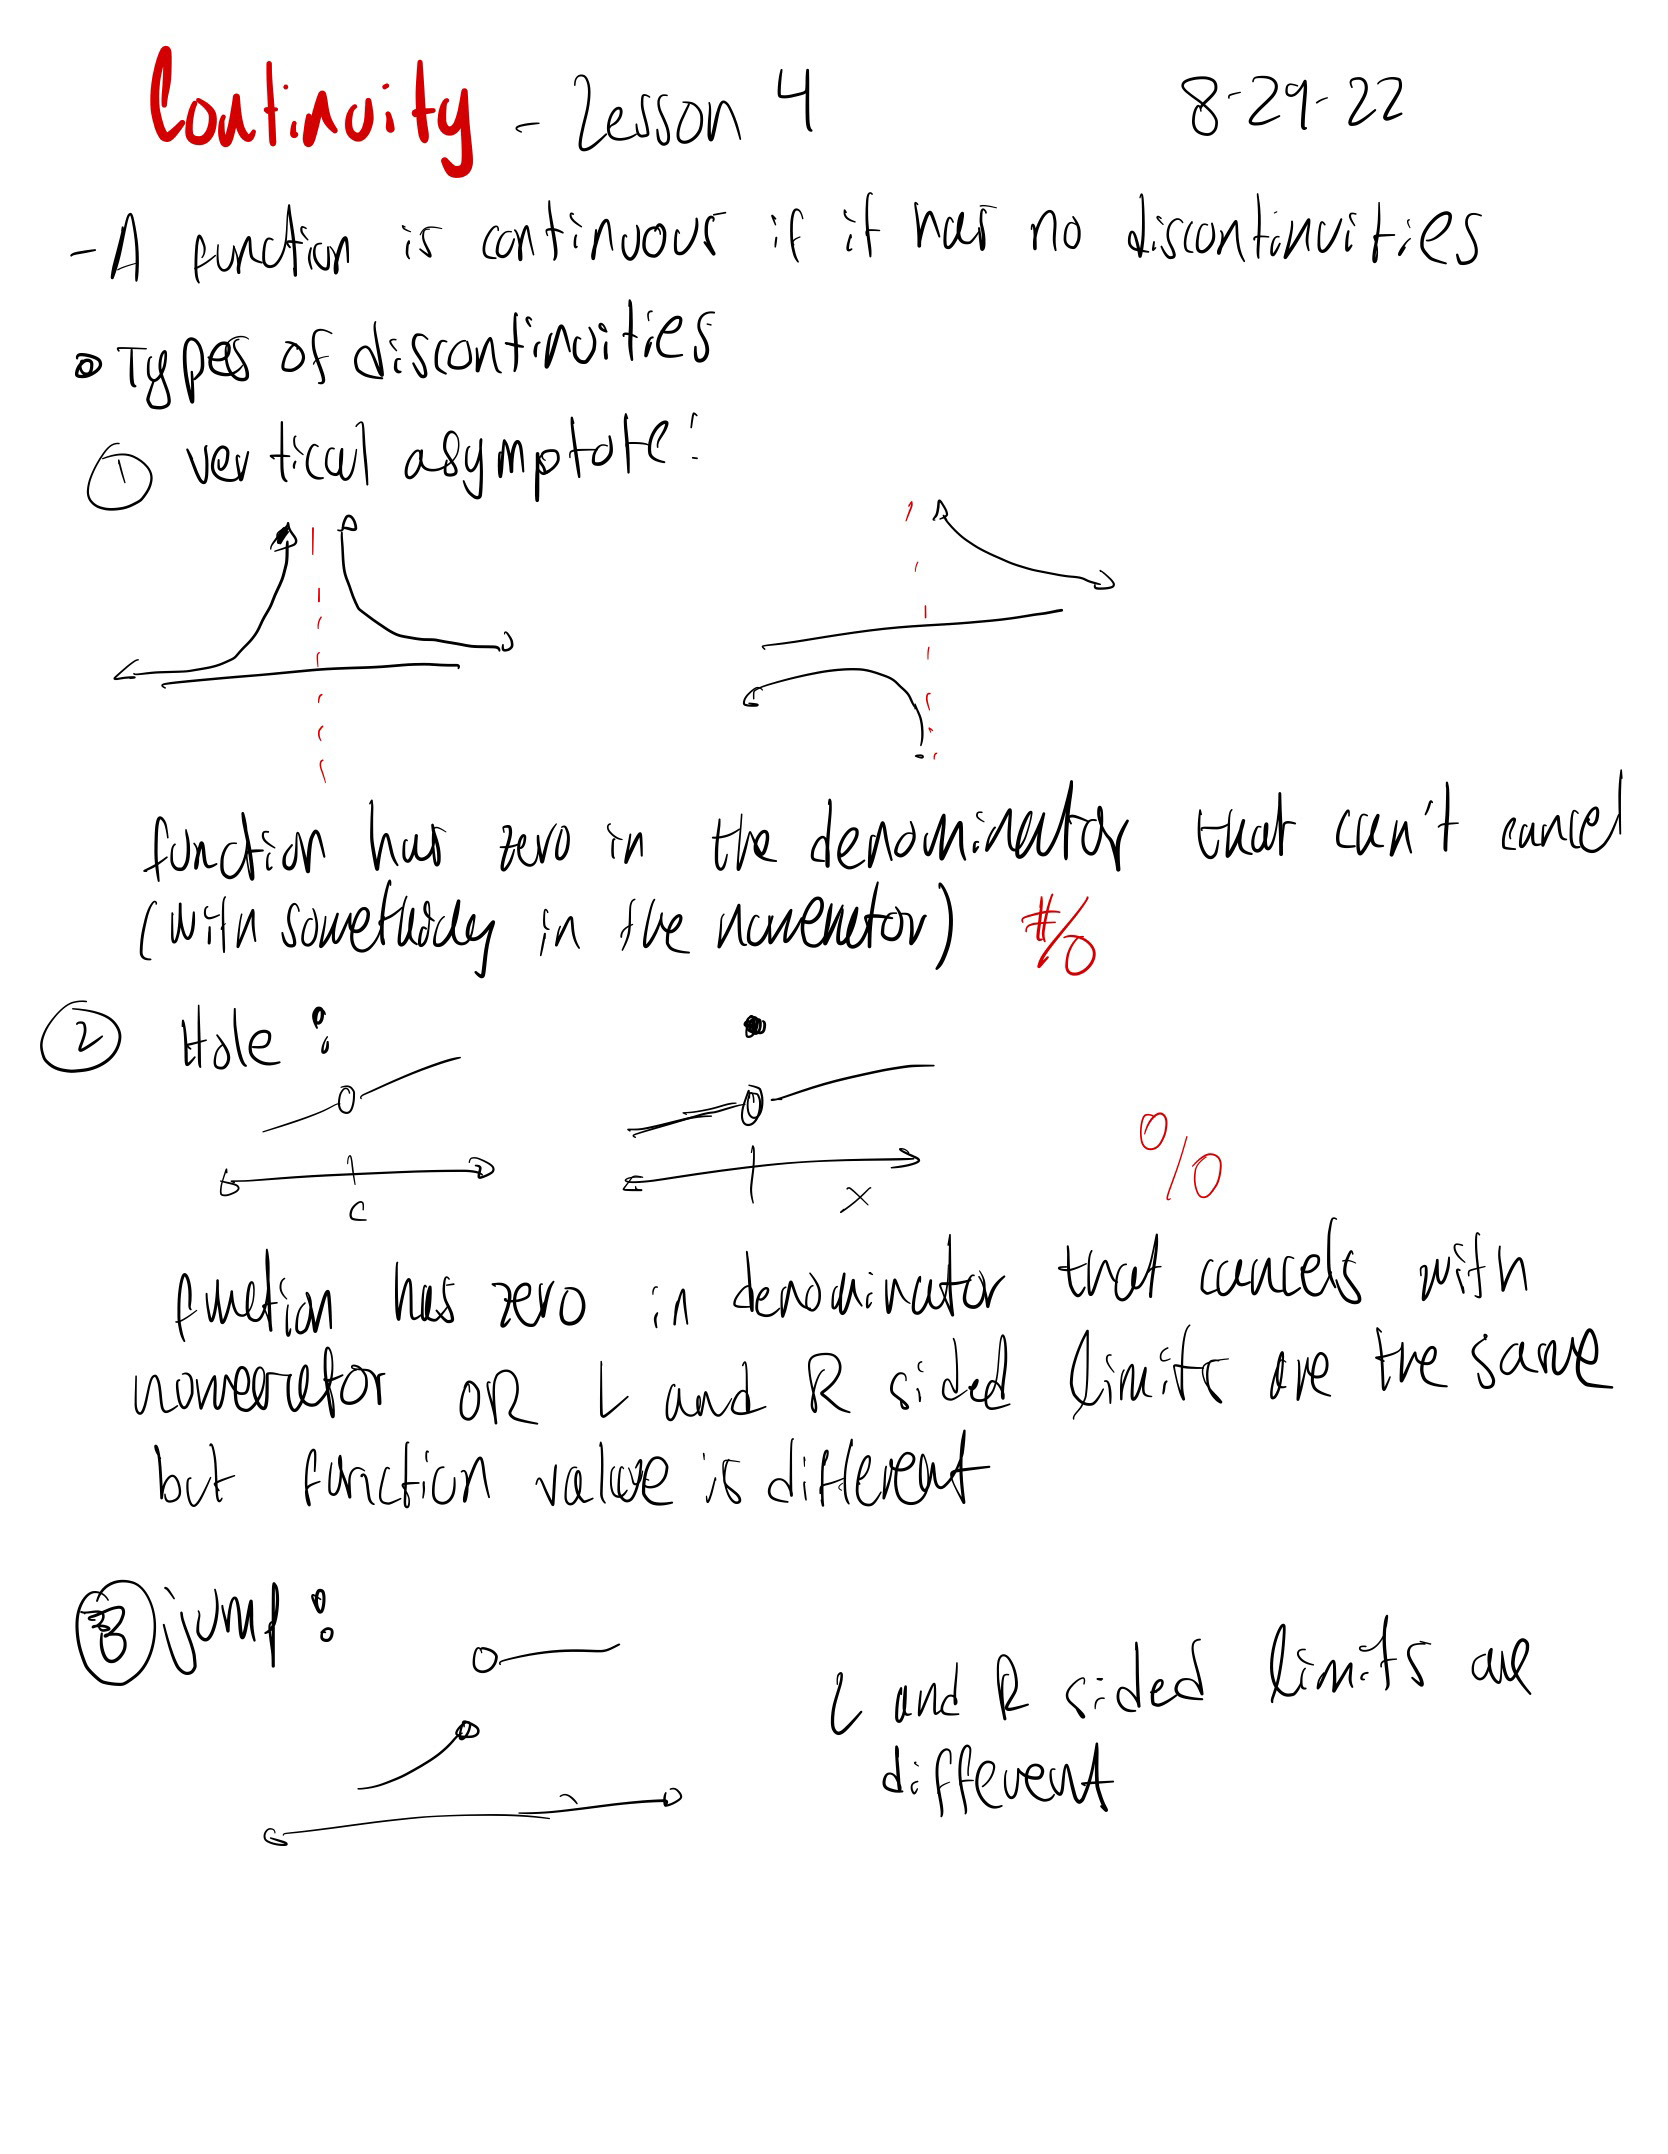 Continuity - Lesson 4 8-29-22
- A function is continuous if it has no discontinuities
• Types of discontinuities
① vertical asymptote:
function has zero in the denominator that can't cancel
(with something in the numerator) #/0
② Hole:
0/0
c
x
function has zero in denominator that cancels with
numerator OR L and R sided limits are the same
but function value is different
③ jump:
L and R sided limits are
different